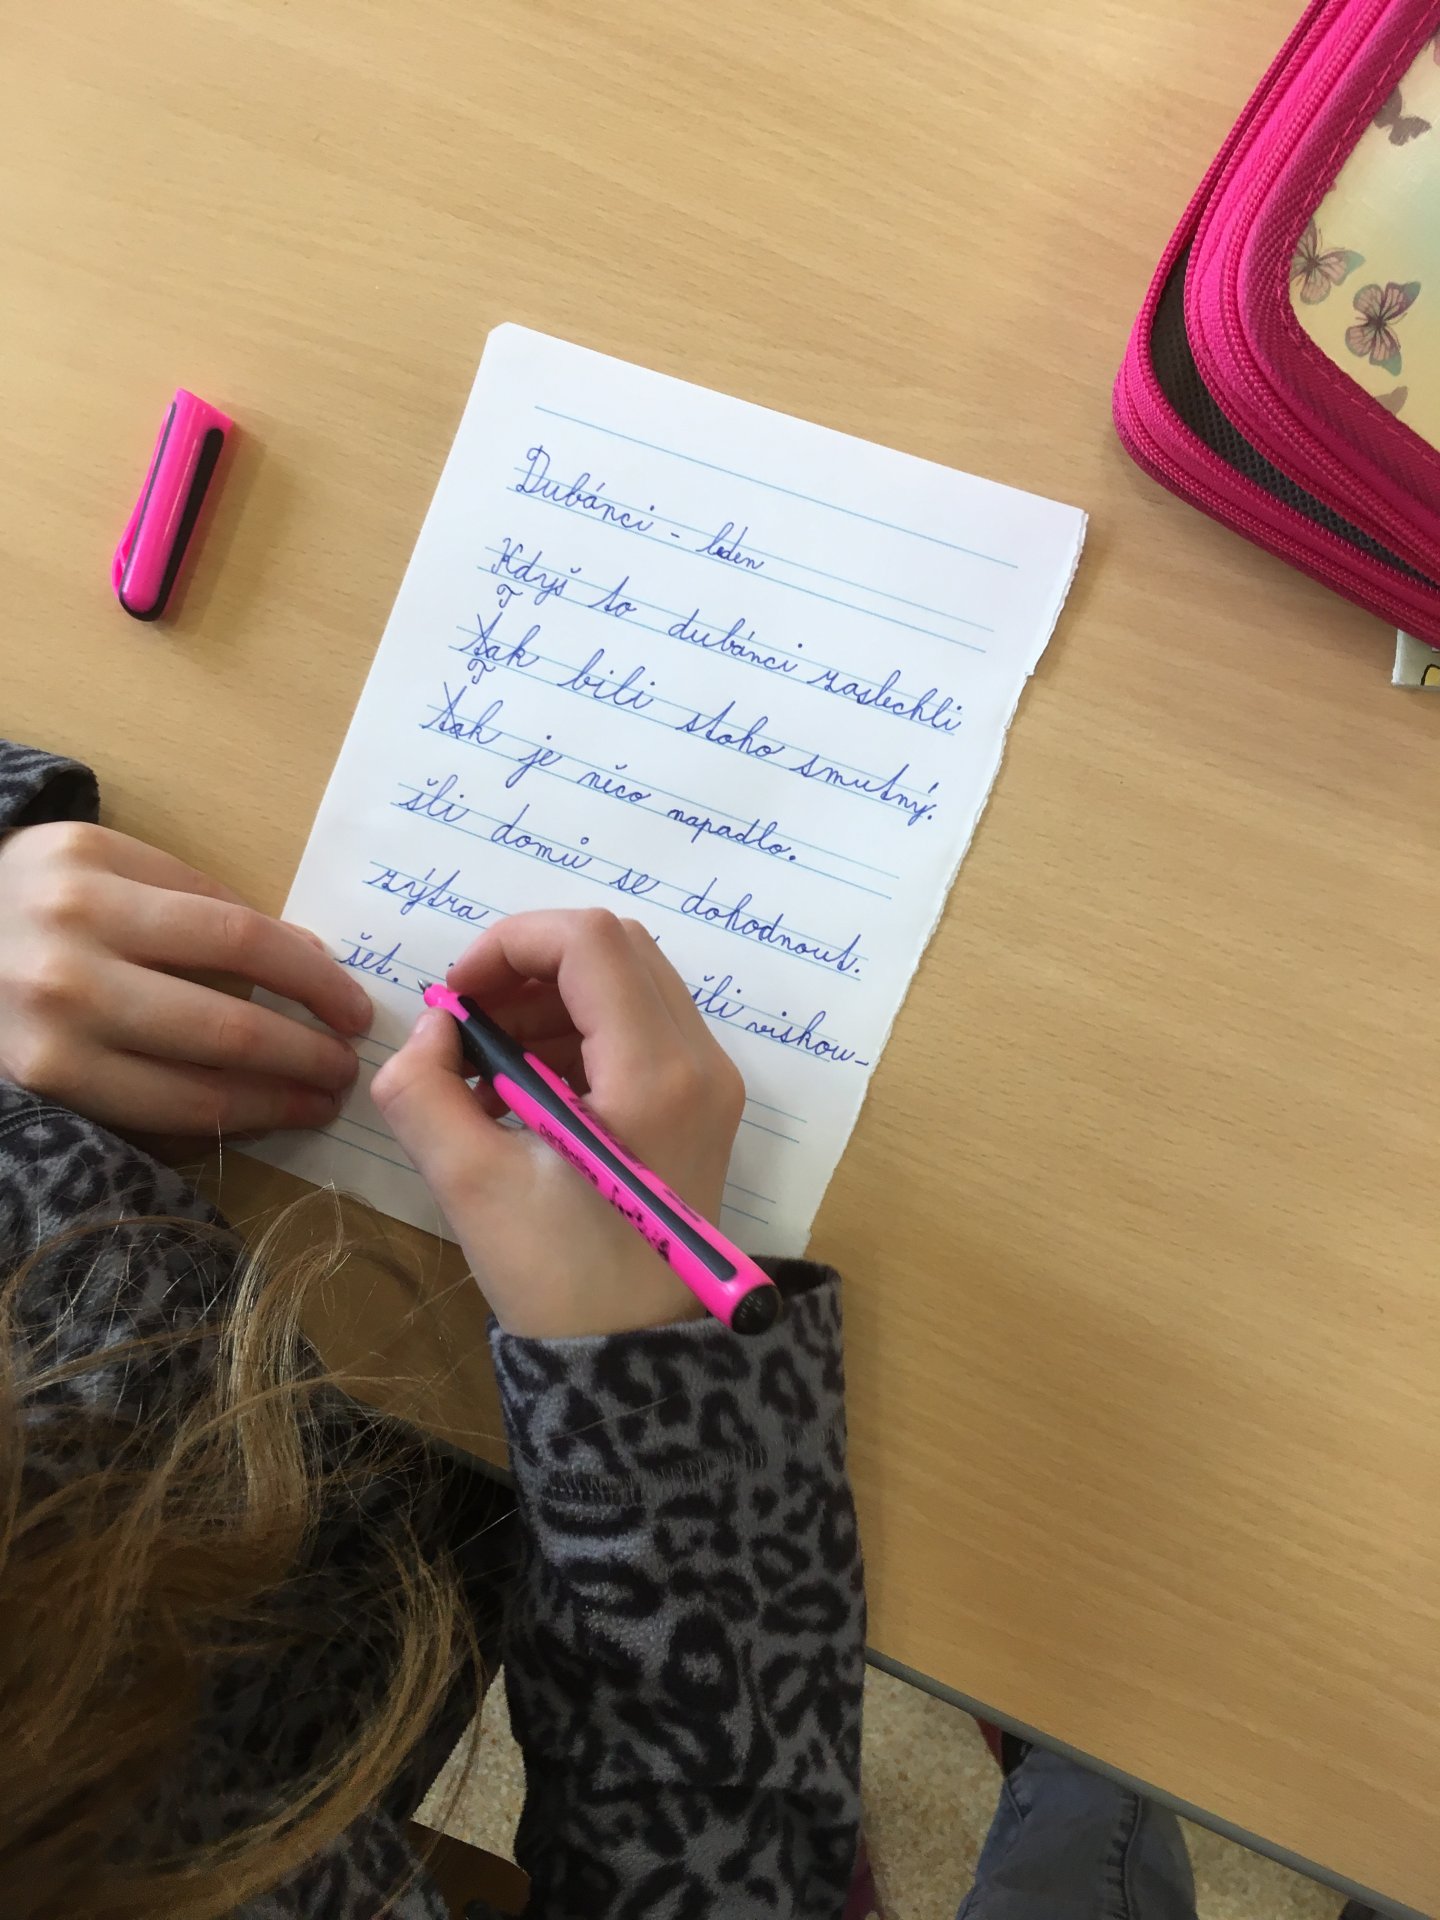 Dubánci - leden
Kdyš to dubánci zaslechli
T
tak bili stoho smutný.
T
tak je něco napadlo.
šli domů se dohodnout.
zýtra šli viskou-
šet.